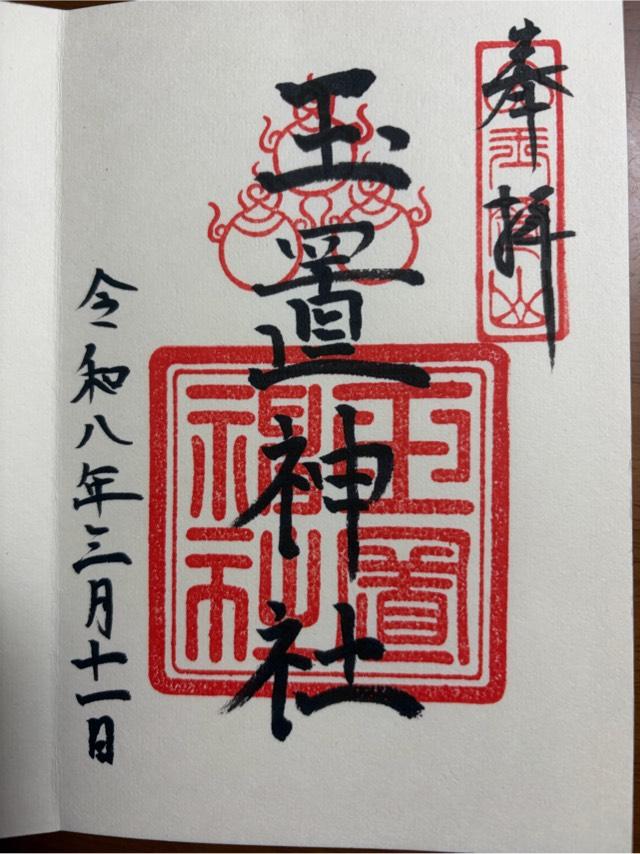 奉拝
玉置山
玉置神社
玉置
神社
令和八年三月十一日